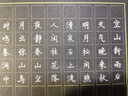 空山新雨后
天气晚来秋
明月松间照
清泉石上流
人闲桂花落
夜静春山空
月出惊山鸟
时鸣春涧中